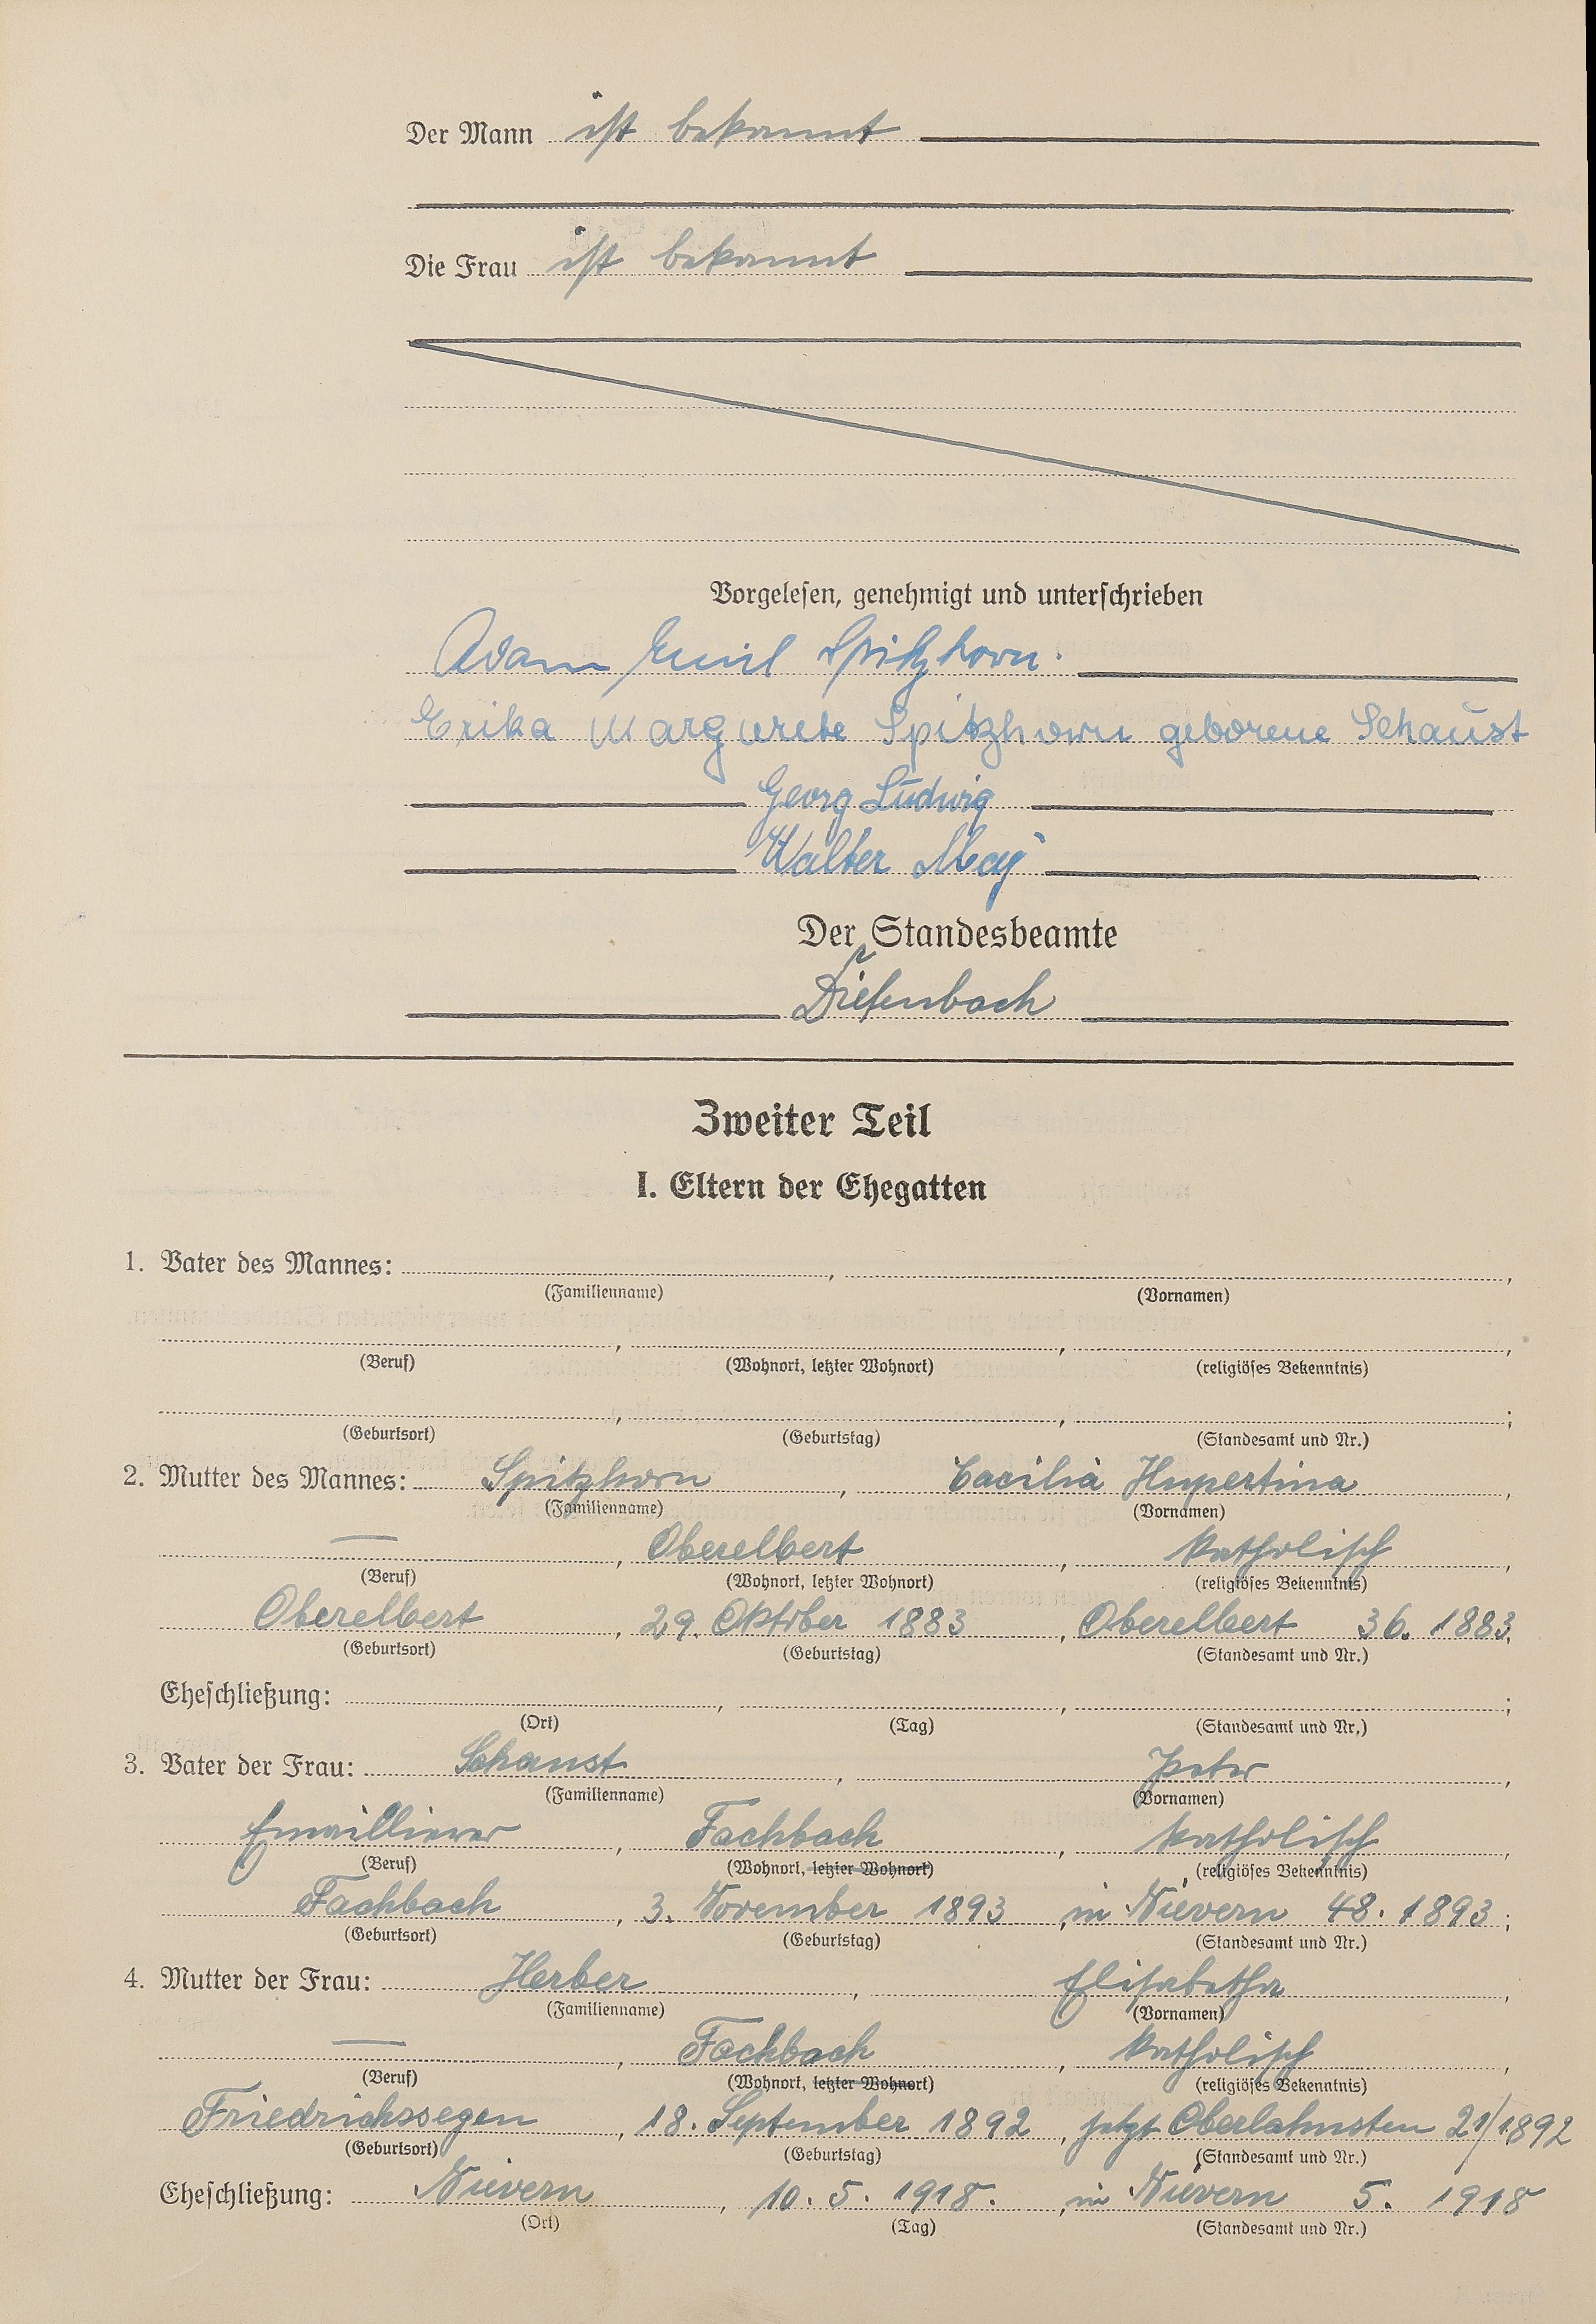 Der Mann ist bekannt
Die Frau ist bekannt
Vorgelesen, genehmigt und unterschrieben
Adam Emil Spitzhorn.
Erika Margarete Spitzhorn geborene Schaust
Georg Ludwig
Walter May
Der Standesbeamte
Diefenbach
Zweiter Teil
I. Eltern der Ehegatten
1. Vater des Mannes: , ,
(Familienname) (Vornamen)
, , ,
(Beruf) (Wohnort, letzter Wohnort) (religiöses Bekenntnis)
, , ;
(Geburtsort) (Geburtstag) (Standesamt und Nr.)
2. Mutter des Mannes: Spitzhorn , Cacilia Hupertina ,
(Familienname) (Vornamen)
— , Oberelbert , katholisch ,
(Beruf) (Wohnort, letzter Wohnort) (religiöses Bekenntnis)
Oberelbert , 29. Oktober 1883 , Oberelbert 36. 1883;
(Geburtsort) (Geburtstag) (Standesamt und Nr.)
Eheschließung: , , ;
(Ort) (Tag) (Standesamt und Nr.)
3. Vater der Frau: Schaust , Peter ,
(Familienname) (Vornamen)
Emaillierer , Fachbach , katholisch ,
(Beruf) (Wohnort, letzter Wohnort) (religiöses Bekenntnis)
Fachbach , 3. November 1893 , in Nievern 48. 1893 ;
(Geburtsort) (Geburtstag) (Standesamt und Nr.)
4. Mutter der Frau: Herber , Elisabetha ,
(Familienname) (Vornamen)
— , Fachbach , katholisch ,
(Beruf) (Wohnort, letzter Wohnort) (religiöses Bekenntnis)
Friedrichssegen , 18. September 1892 , jetzt Oberlahnstein 21/1892
(Geburtsort) (Geburtstag) (Standesamt und Nr.)
Eheschließung: Nievern , 10. 5. 1918. , in Nievern 5. 1918
(Ort) (Tag) (Standesamt und Nr.)